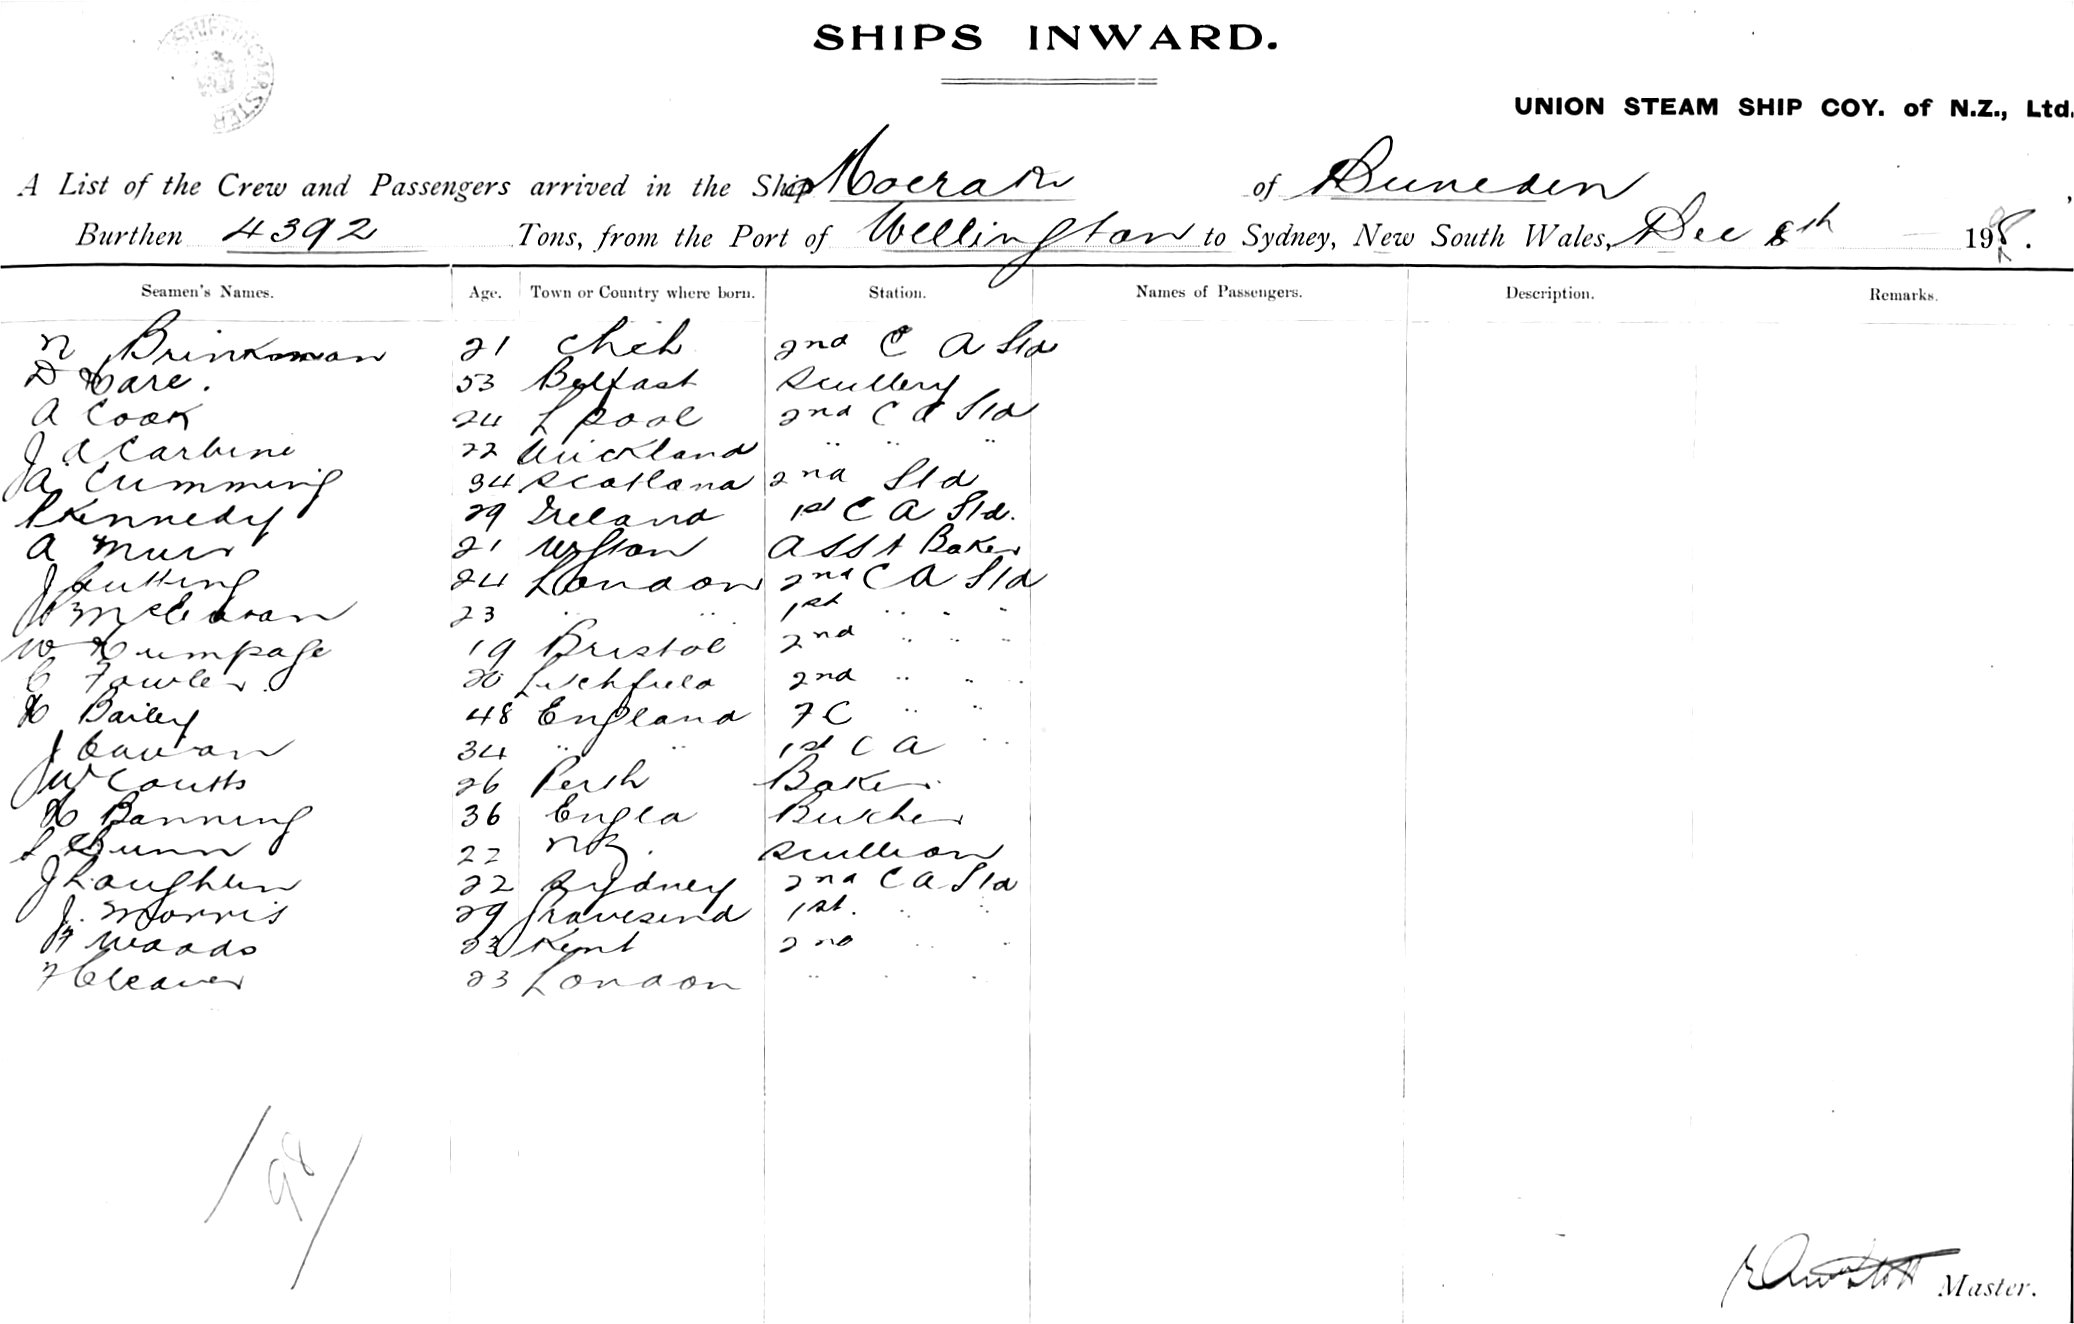 SHIPS INWARD.
UNION STEAM SHIP COY. of N.Z., Ltd.
A List of the Crew and Passengers arrived in the Ship Moeraki of Dunedin
Burthen 4392 Tons, from the Port of Wellington to Sydney, New South Wales, Dec 8th 19
Seamen's Names. Age. Town or Country where born. Station. Names of Passengers. Description. Remarks.
N Brinkman 21 2nd C A Std
D 53 Belfast Scullery
A Cook 24 L pool 2nd C A Std
J A Carbine 22 Auckland " " "
JA Cumming 34 Scotland 2nd Std
Kennedy 29 Ireland 1st C A Std.
A Muir 21 Wgton Asst Baker
J Cutting 24 London 2nd C A Std
23 " " 1st " " "
W Humpage 19 Bristol 2nd " " "
C Fowler 20 Litchfield 2nd " " "
H Bailey 48 England F C " "
J Cowan 34 " " 1st C A " "
JW Coutts 26 Perth Baker
H Banning 36 Engla Butcher
Dunn 22 NZ. Scullion
J Loughlin 22 Sydney 2nd C A Std
J. Morris 29 Gravesend 1st. " "
H Woods 23 Kent 2nd " "
F Cleaver 23 London " " "
98
Master.